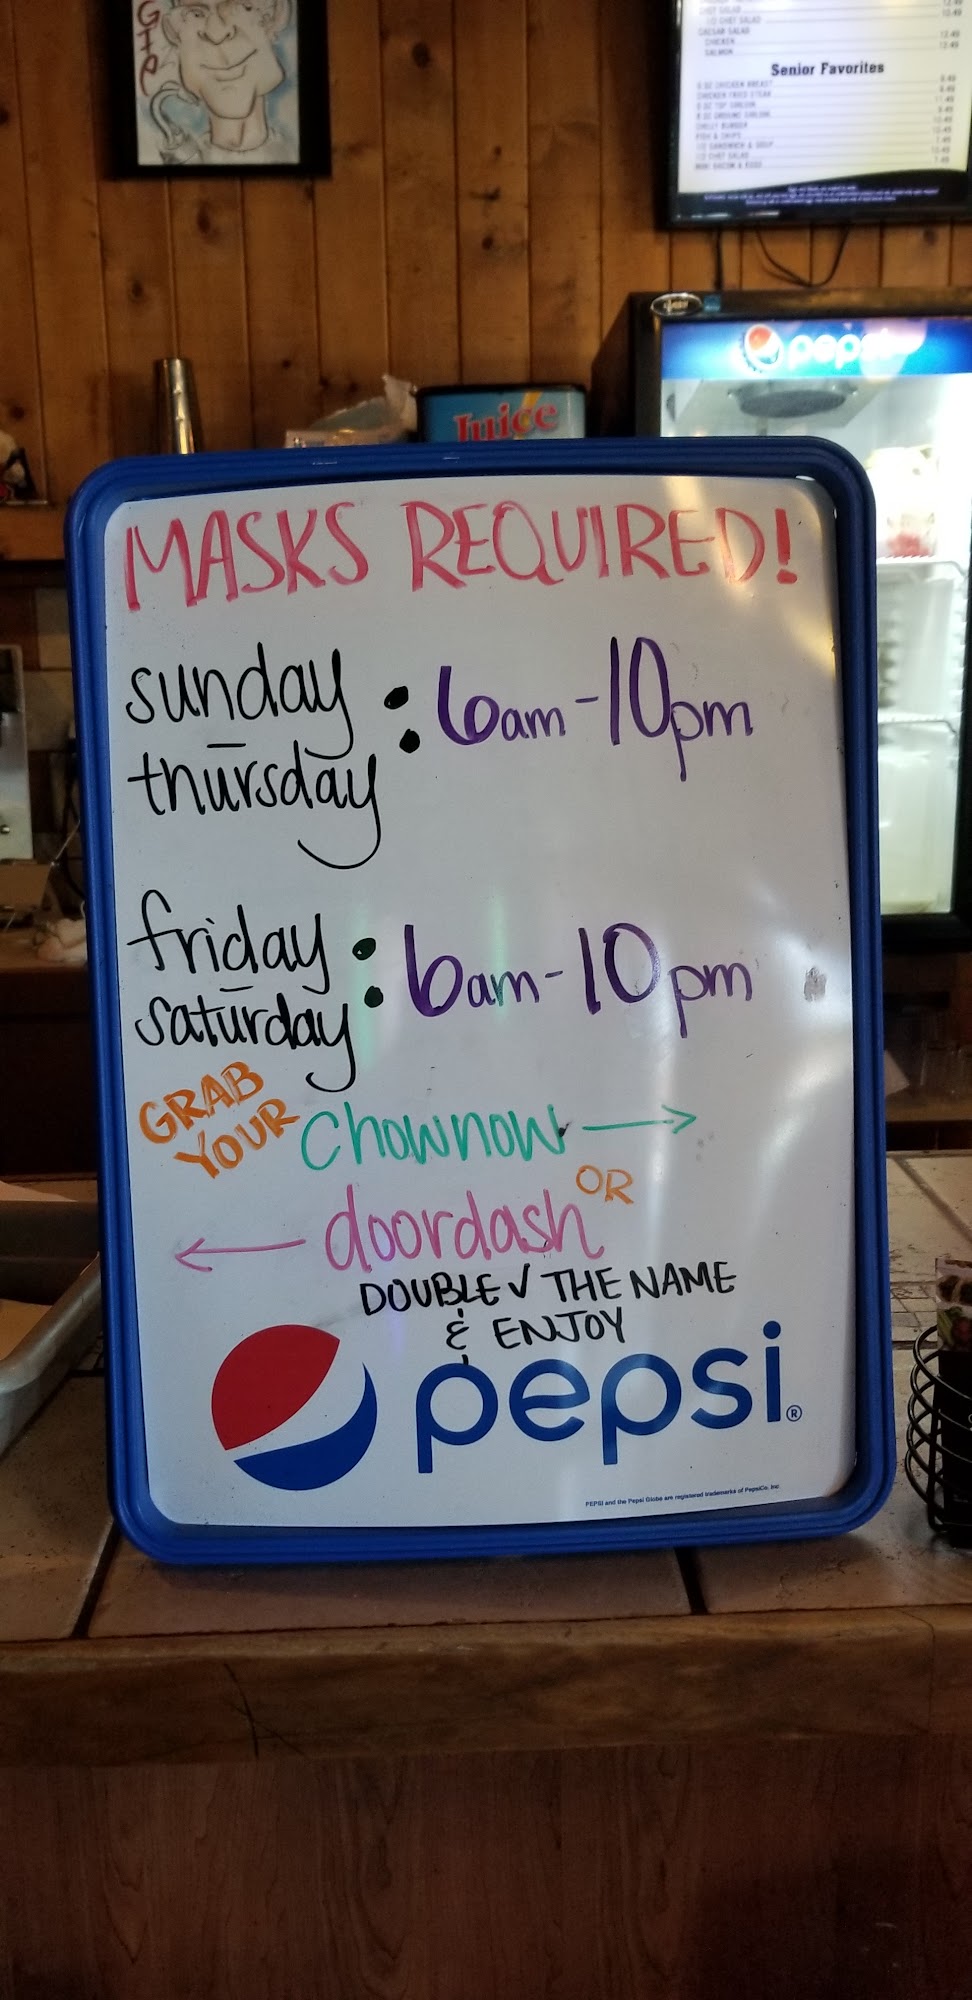 GIP
CHEF SALAD
1/2 CHEF SALAD
CAESAR SALAD
CHICKEN
SALMON
Senior Favorites
5 OZ CHICKEN BREAST
CHICKEN FRIED STEAK
6 OZ TOP SIRLOIN
8 OZ GROUND SIRLOIN
CHILLY BURGER
FISH & CHIPS
1/2 SANDWICH & SOUP
1/2 CHEF SALAD
MINI BACON & EGGS
pepsi
Juice
MASKS REQUIRED!
sunday - thursday : 6am-10pm
friday - saturday : 6am-10pm
GRAB YOUR chownow →
OR
← doordash
DOUBLE √ THE NAME
& ENJOY
pepsi®
PEPSI and the Pepsi Globe are registered trademarks of PepsiCo, Inc.